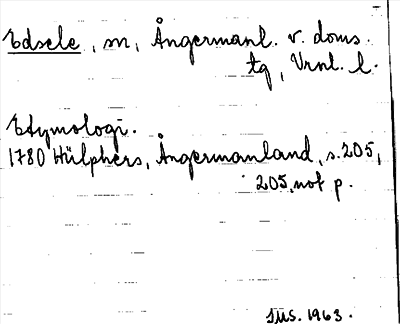 Edsele, sn, Ångermanl. v. doms.
tg, Vrnl. l.
Etymologi.
1780 Hülphers, Ångermanland, s. 205,
205, not p.
JUS. 1963.